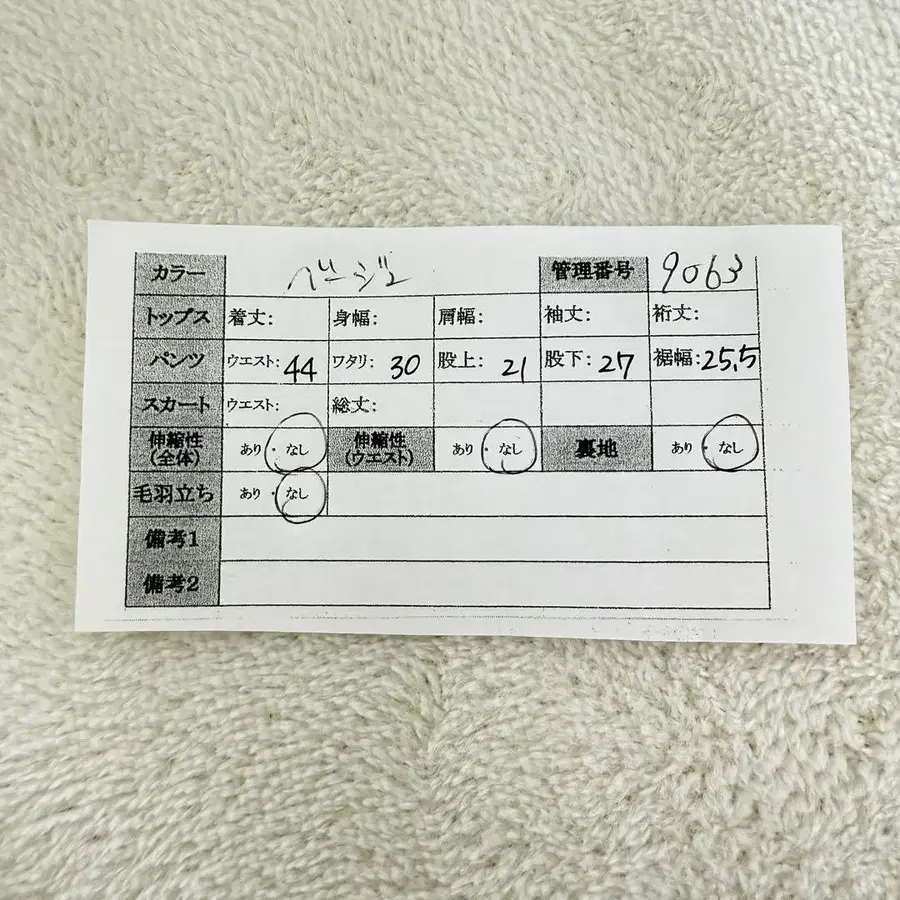 カラー ベージュ 管理番号 9063
トップス 着丈: 身幅: 肩幅: 袖丈: 裄丈:
パンツ ウエスト: 44 ワタリ: 30 股上: 21 股下: 27 裾幅: 25.5
スカート ウエスト: 総丈:
伸縮性(全体) あり・なし 伸縮性(ウエスト) あり・なし 裏地 あり・なし
毛羽立ち あり・なし
備考1
備考2